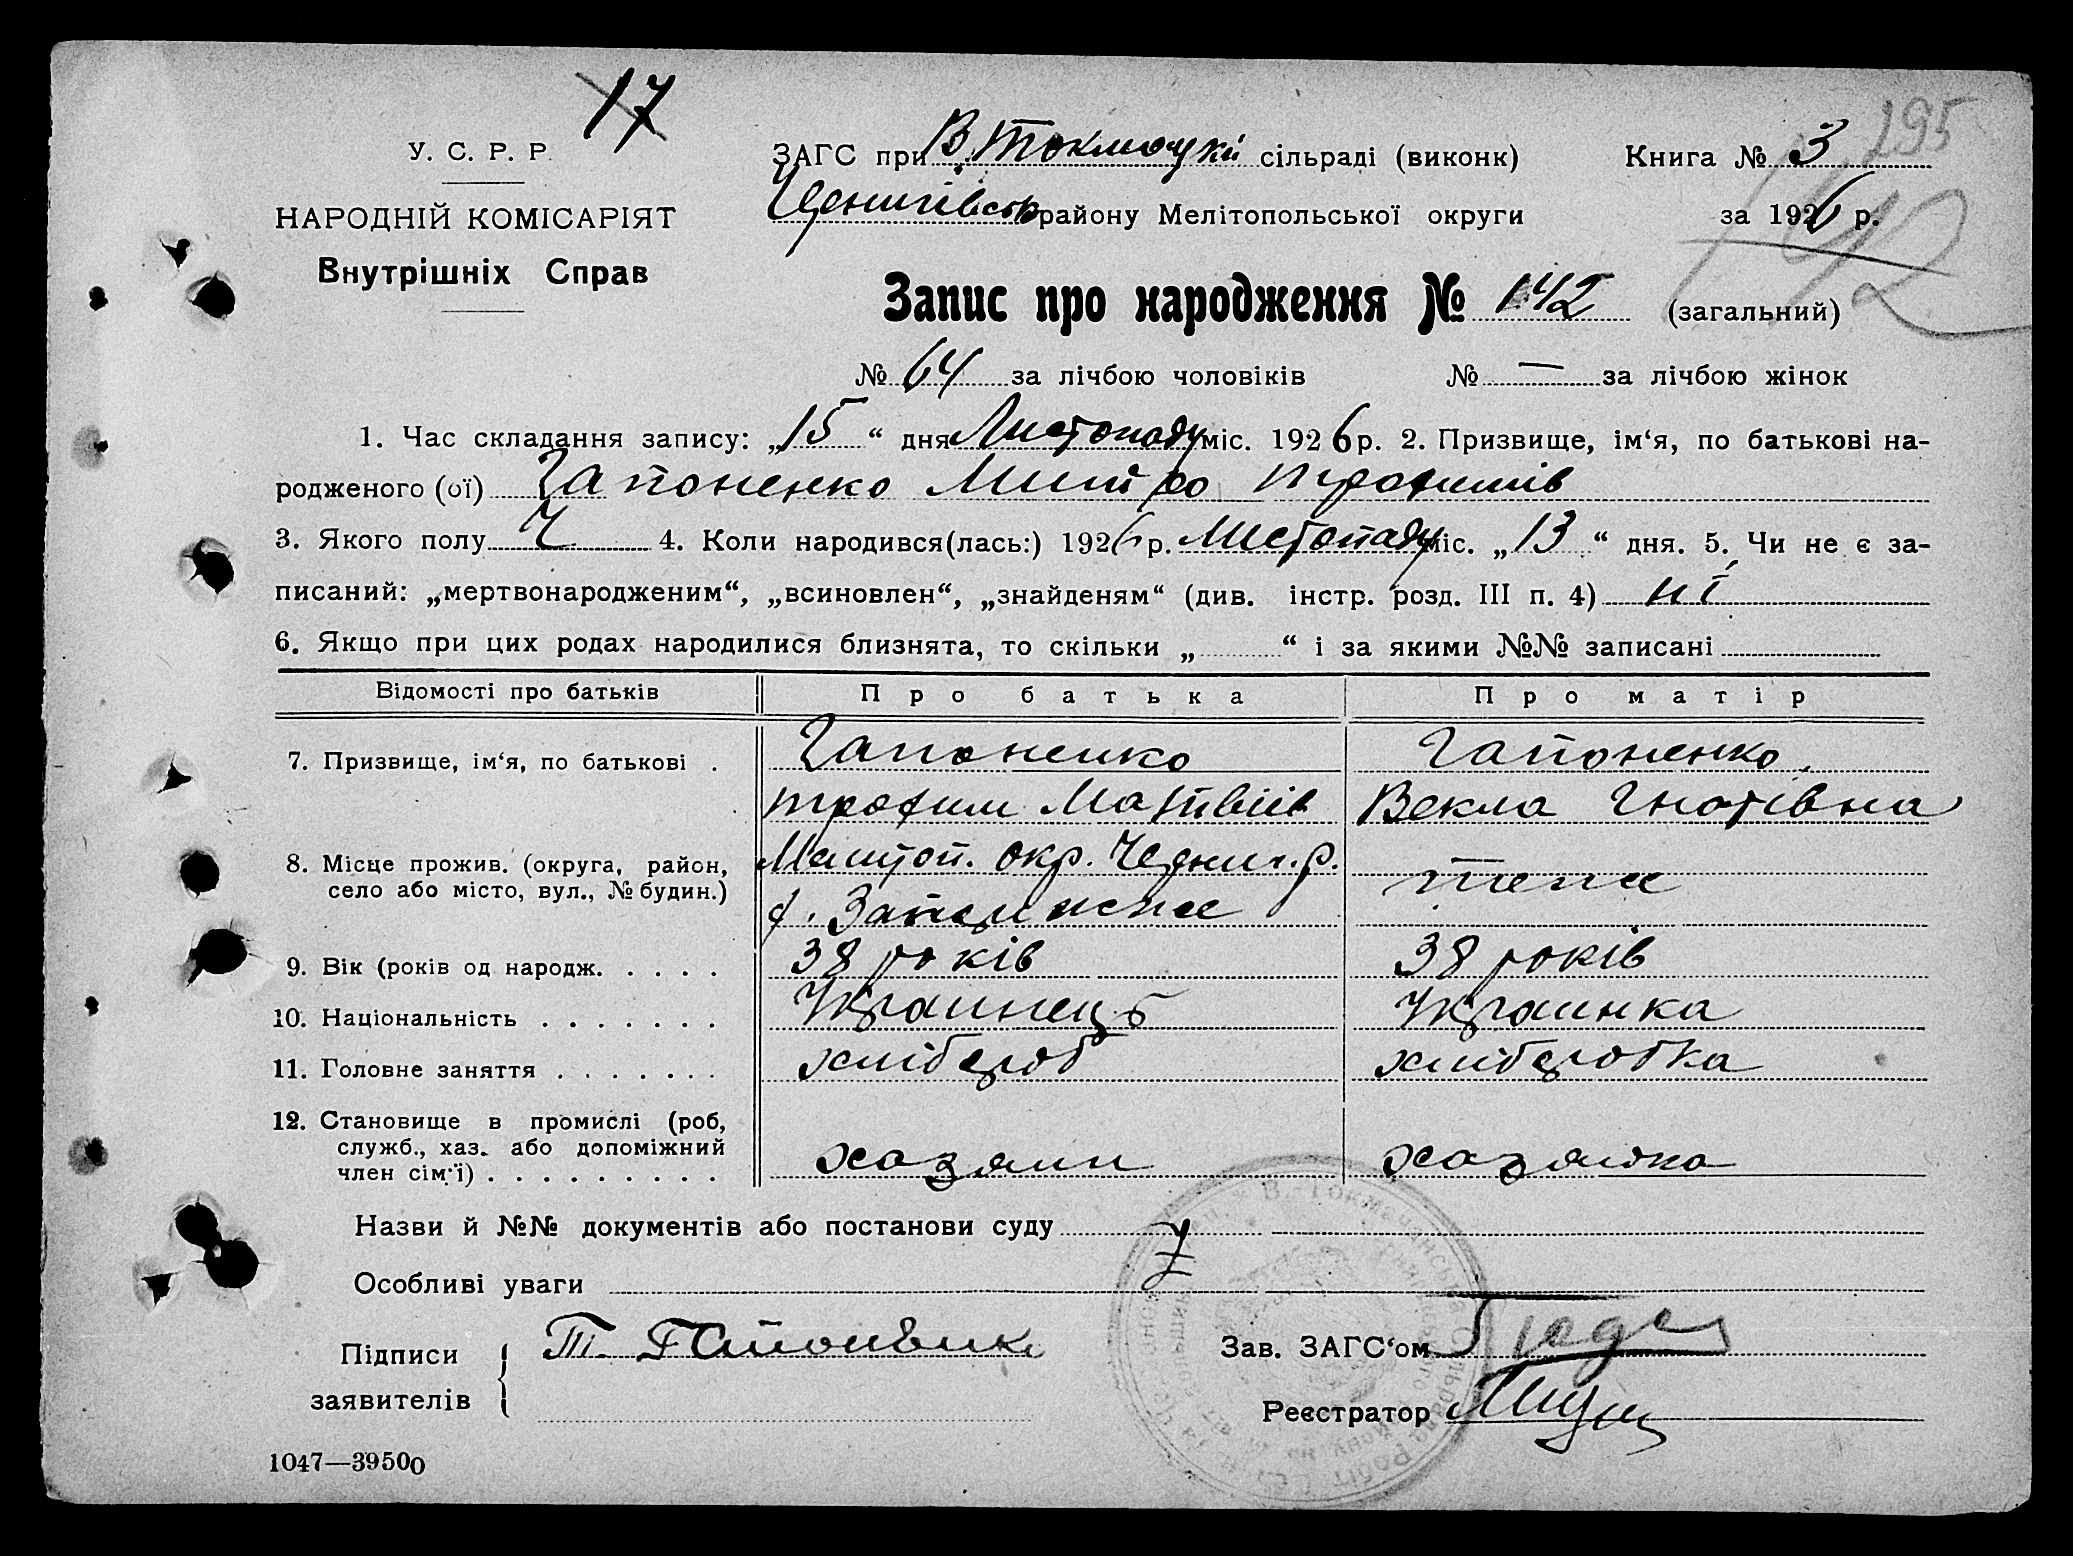 17
295
142
У. С. Р. Р.
НАРОДНІЙ КОМІСАРІЯТ
Внутрішніх Справ
ЗАГС при В. Токмацькій сільраді (виконк)
Книга № 3
району Мелітопольської округи
за 1926 р.
Запис про народження № 142 (загальний)
№ 64 за лічбою чоловіків № — за лічбою жінок
1. Час складання запису: „15“ дня Листопаду міс. 1926 р. 2. Призвище, ім‘я, по батькові на-
родженого (ої) Гапоненко Митро Трофимів
3. Якого полу Ч. 4. Коли народився(лась:) 1926 р. Листопаду міс. „13“ дня. 5. Чи не є за-
писаний: „мертвонародженим“, „всиновлен“, „знайденям“ (див. інстр. розд. III п. 4) ні
6. Якщо при цих родах народилися близнята, то скільки „ “ і за якими №№ записані
Відомості про батьків Про батька Про матір
7. Призвище, ім‘я, по батькові . Гапоненко Гапоненко
Трофим Матвіїв Векла Гнатівна
8. Місце прожив. (округа, район,
село або місто, вул., № будин.)
окр.
тепе
9. Вік (років од народж. . . . . 38 років 38 років
10. Національність . . . . . . . Украинець Украинка
11. Головне заняття . . . . . . . хлібороб хліборобка
12. Становище в промислі (роб,
служб., хаз. або допоміжний
член сім‘ї) . . . . . . . . . хазяин хазяйка
Назви й №№ документів або постанови суду
Особливі уваги
Підписи
заявителів
Т.
Зав. ЗАГС‘ом
Реєстратор
1047—39500